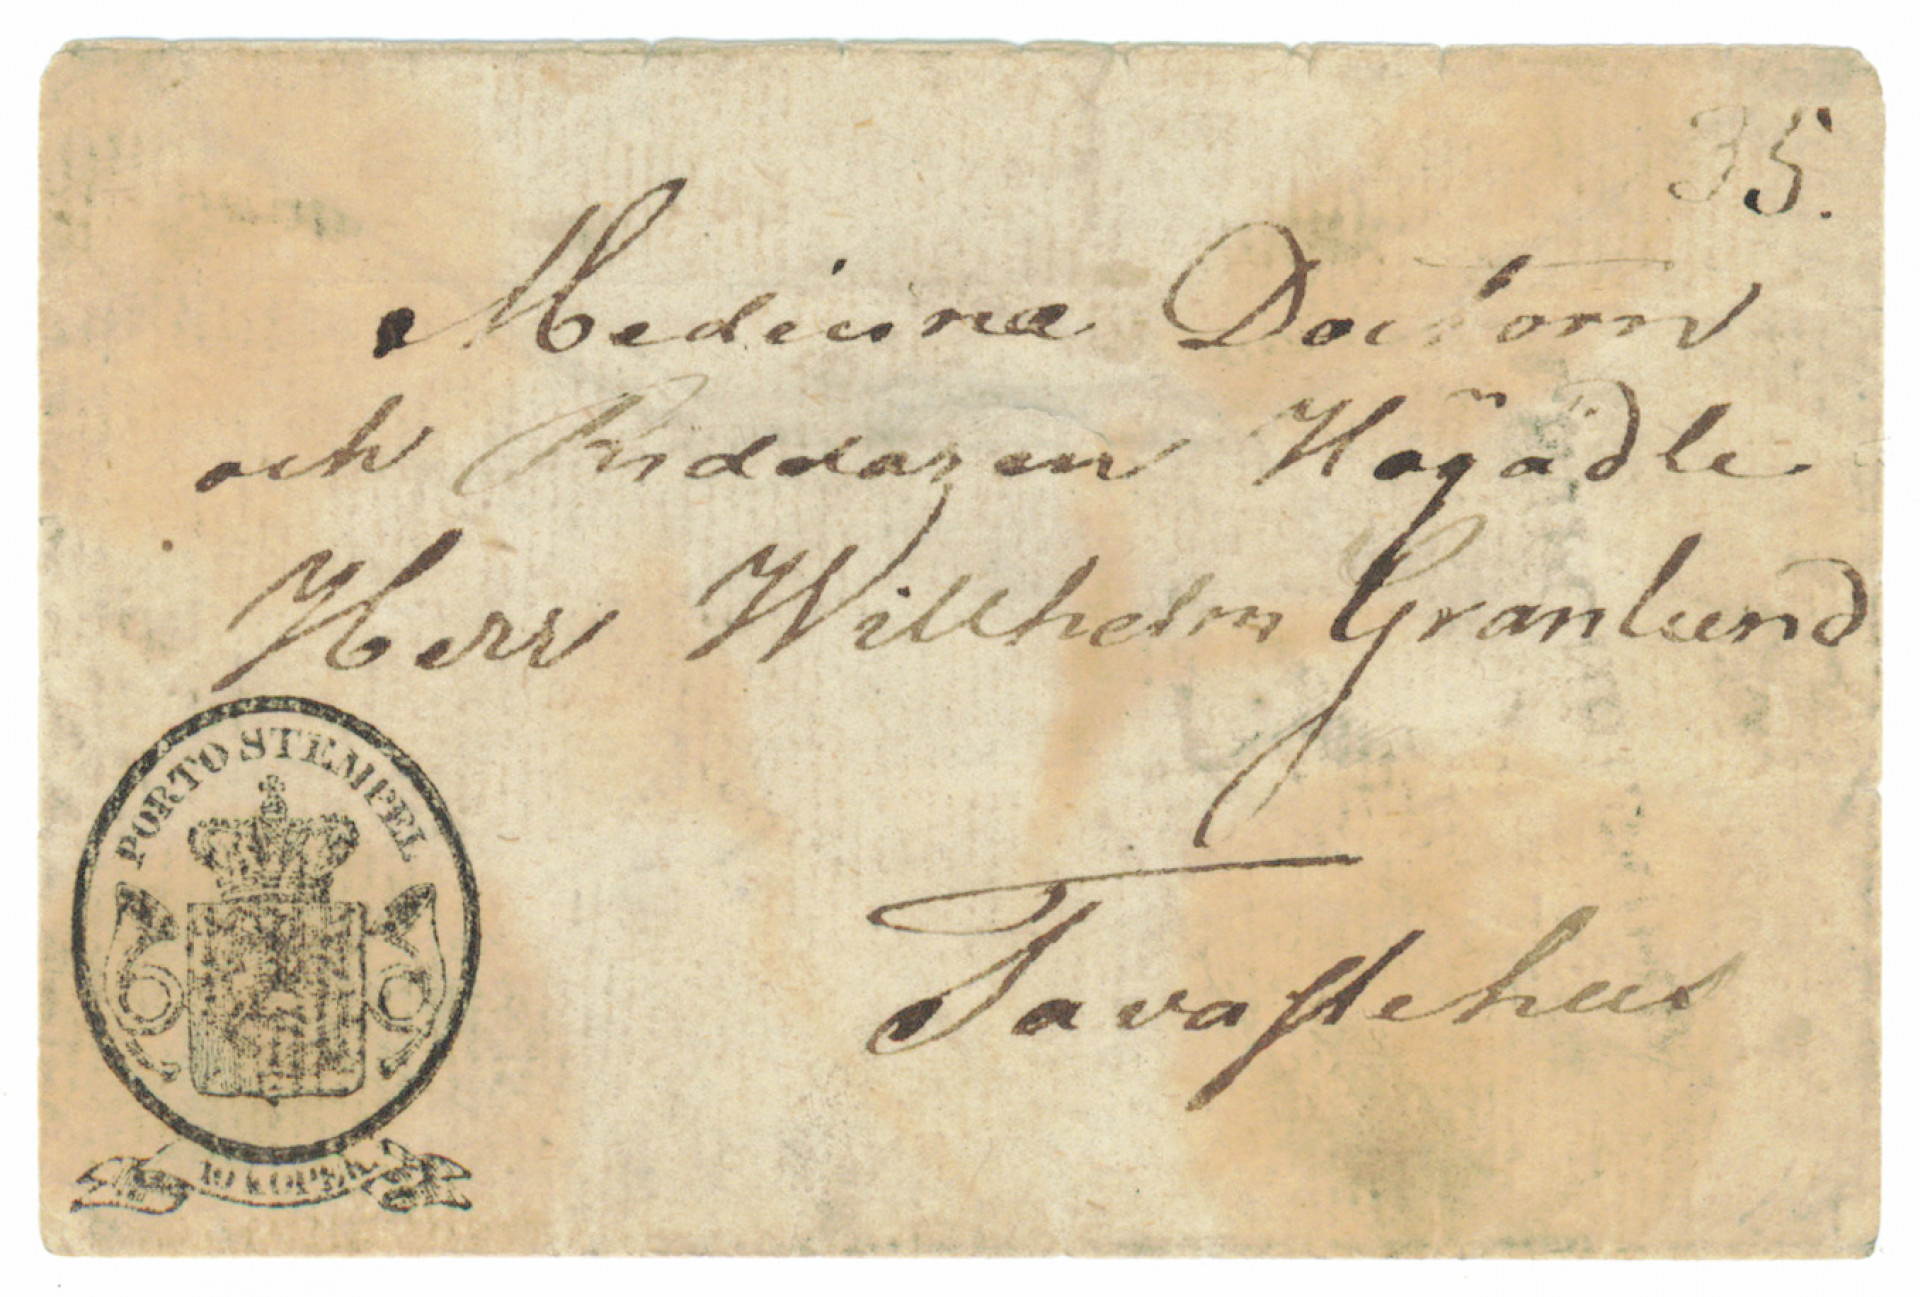 35.
Medicinæ Doctorn
och Riddaren Högädle
Herr Willhelm Granlund
Tavastehus
PORTO STEMPEL
10 KOPEK.